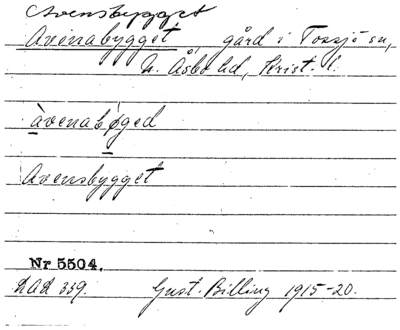 Avensbygget
Avenabygget, gård i Tossjö sn,
N. Åsbo hd, Krist. l.
àvenabøged
Avensbygget
Nr 5504.
LAL 339. Gust. Billing 1915-20.